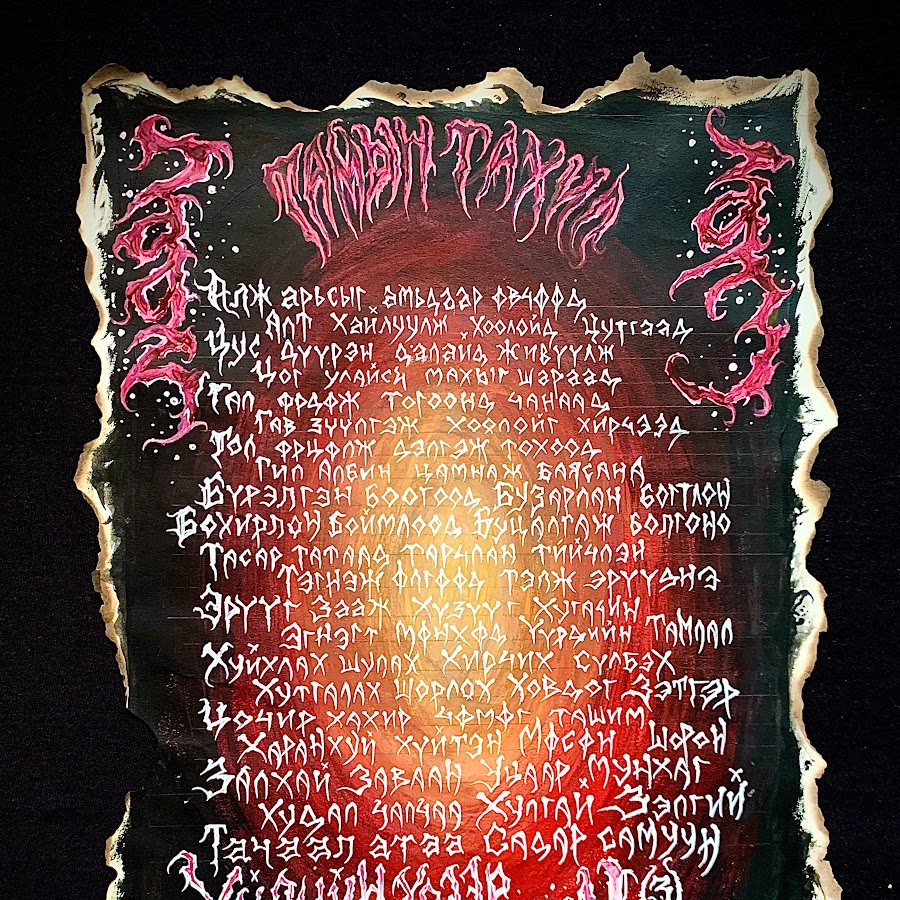 ТАМЫН ТАХИЛ
Алж арьсыг амьдаар өвчөөд
Алт Хайлуулж хоолойд цутгаад
Цус дүүрэн далайд живүүлж
Цог улайсч махыг шараад
Гал өрдөж тогоонд чанаад
Гав зүүлгэж хоолойг хирчээд
Гол өрцөлж дэлгэж тохоод
Гил Албин цамнаж баясанА
Бүрэлгэн боогоод Бузарлан богтлон
Бохирлон Боймлоод Буцалгаж болгоно
Тасар татаад тарчлан тийчлэн
Тэгнэж өлгөөд тэлж эрүүднэ
Эрүүг Зааж хүзүүг Хугачин
Эгнэгт мөнхөд Үүрдийн Тамлал
Хуйхлах шулах Хирчих сүлбэх
Хутгалах шорлох Ховдог Зэтгэр
Цочир хахир чөмөг ташим
Харанхуй хүйтэн Мөсөн Шорон
Залхай Заваан Уцаар мунхаг
Худал залчаа Хулгай Зэлгий
Тачаал атаа Садар самуун